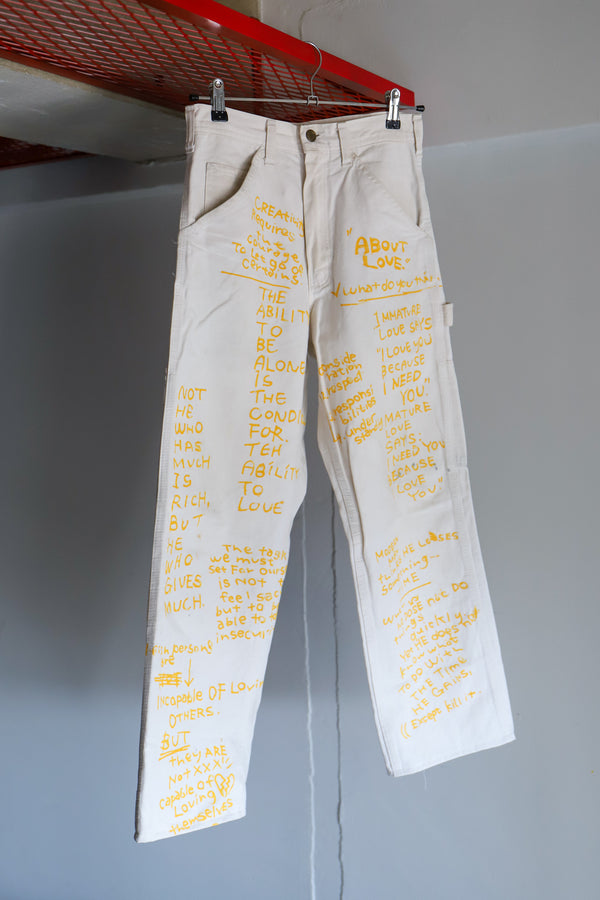 CREATING
Requires
the
courage
To let go of
certains.
THE
ABILITY
TO
BE
ALONE
IS
THE
CONDIC
FOR.
TEH
ABILITY
TO
LOVE
NOT
HE
WHO
HAS
MUCH
IS
RICH,
BUT
HE
WHO
GIVES
MUCH.
The task
we must
set For ours
is NOT t
feel sec
but to
able to
insecu
person
are
INCAPABLE OF Lovin
OTHERS.
BUT
they ARE
Not XXX!!
capable OF
Loving
themselves
"ABOUT
LOVE."
what do you thin
IMMATURE
LOVE SAYS
"I LOVE YOU
BECAUSE
I NEED
YOU."
MATURE
LOVE
SAYS
I NEED YOU
BECAUSE
LOVE
YOU"
onside
ration
respect
responsi
bilities
under
standi
HE LOOSES
Something...
TIME
DOES NOT DO
things
quickly
Yet HE does Not
know what
To DO WITH
THE TIME
HE GAINS,
(( Except kill it.